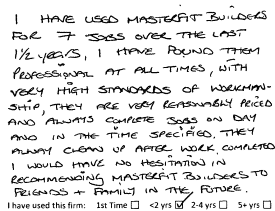 I HAVE USED MASTERFIT BUILDERS
FOR 7 JOBS OVER THE LAST
1½ years, I HAVE FOUND THEM
PROFESSIONAL AT ALL TIMES, WITH
VERY HIGH STANDARDS OF WORKMAN-
SHIP, THEY ARE VERY REASONABLY PRICED
AND ALWAYS COMPLETE JOBS ON DAY
AND IN THE TIME SPECIFIED. THEY
ALWAY CLEAN UP AFTER WORK COMPLETED
I WOULD HAVE NO HESITATION IN
RECOMMENDING MASTERFIT BUILDERS TO
FRIENDS + FAMILY IN THE FUTURE.
I have used this firm: 1st Time ☐ <2 yrs ☑ 2-4 yrs ☐ 5+ yrs ☐